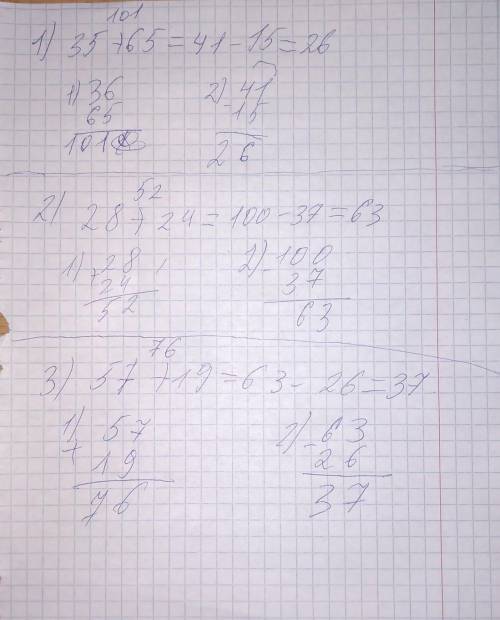 101
1) 35 + 65 = 41 - 15 = 26
1) 36 2) 41
65 - 15
101 26
52
2) 28 + 24 = 100 - 37 = 63
1) + 28 2) - 100
24 37
52 63
76
3) 57 + 19 = 63 - 26 = 37
1) + 57 2) - 63
19 26
76 37